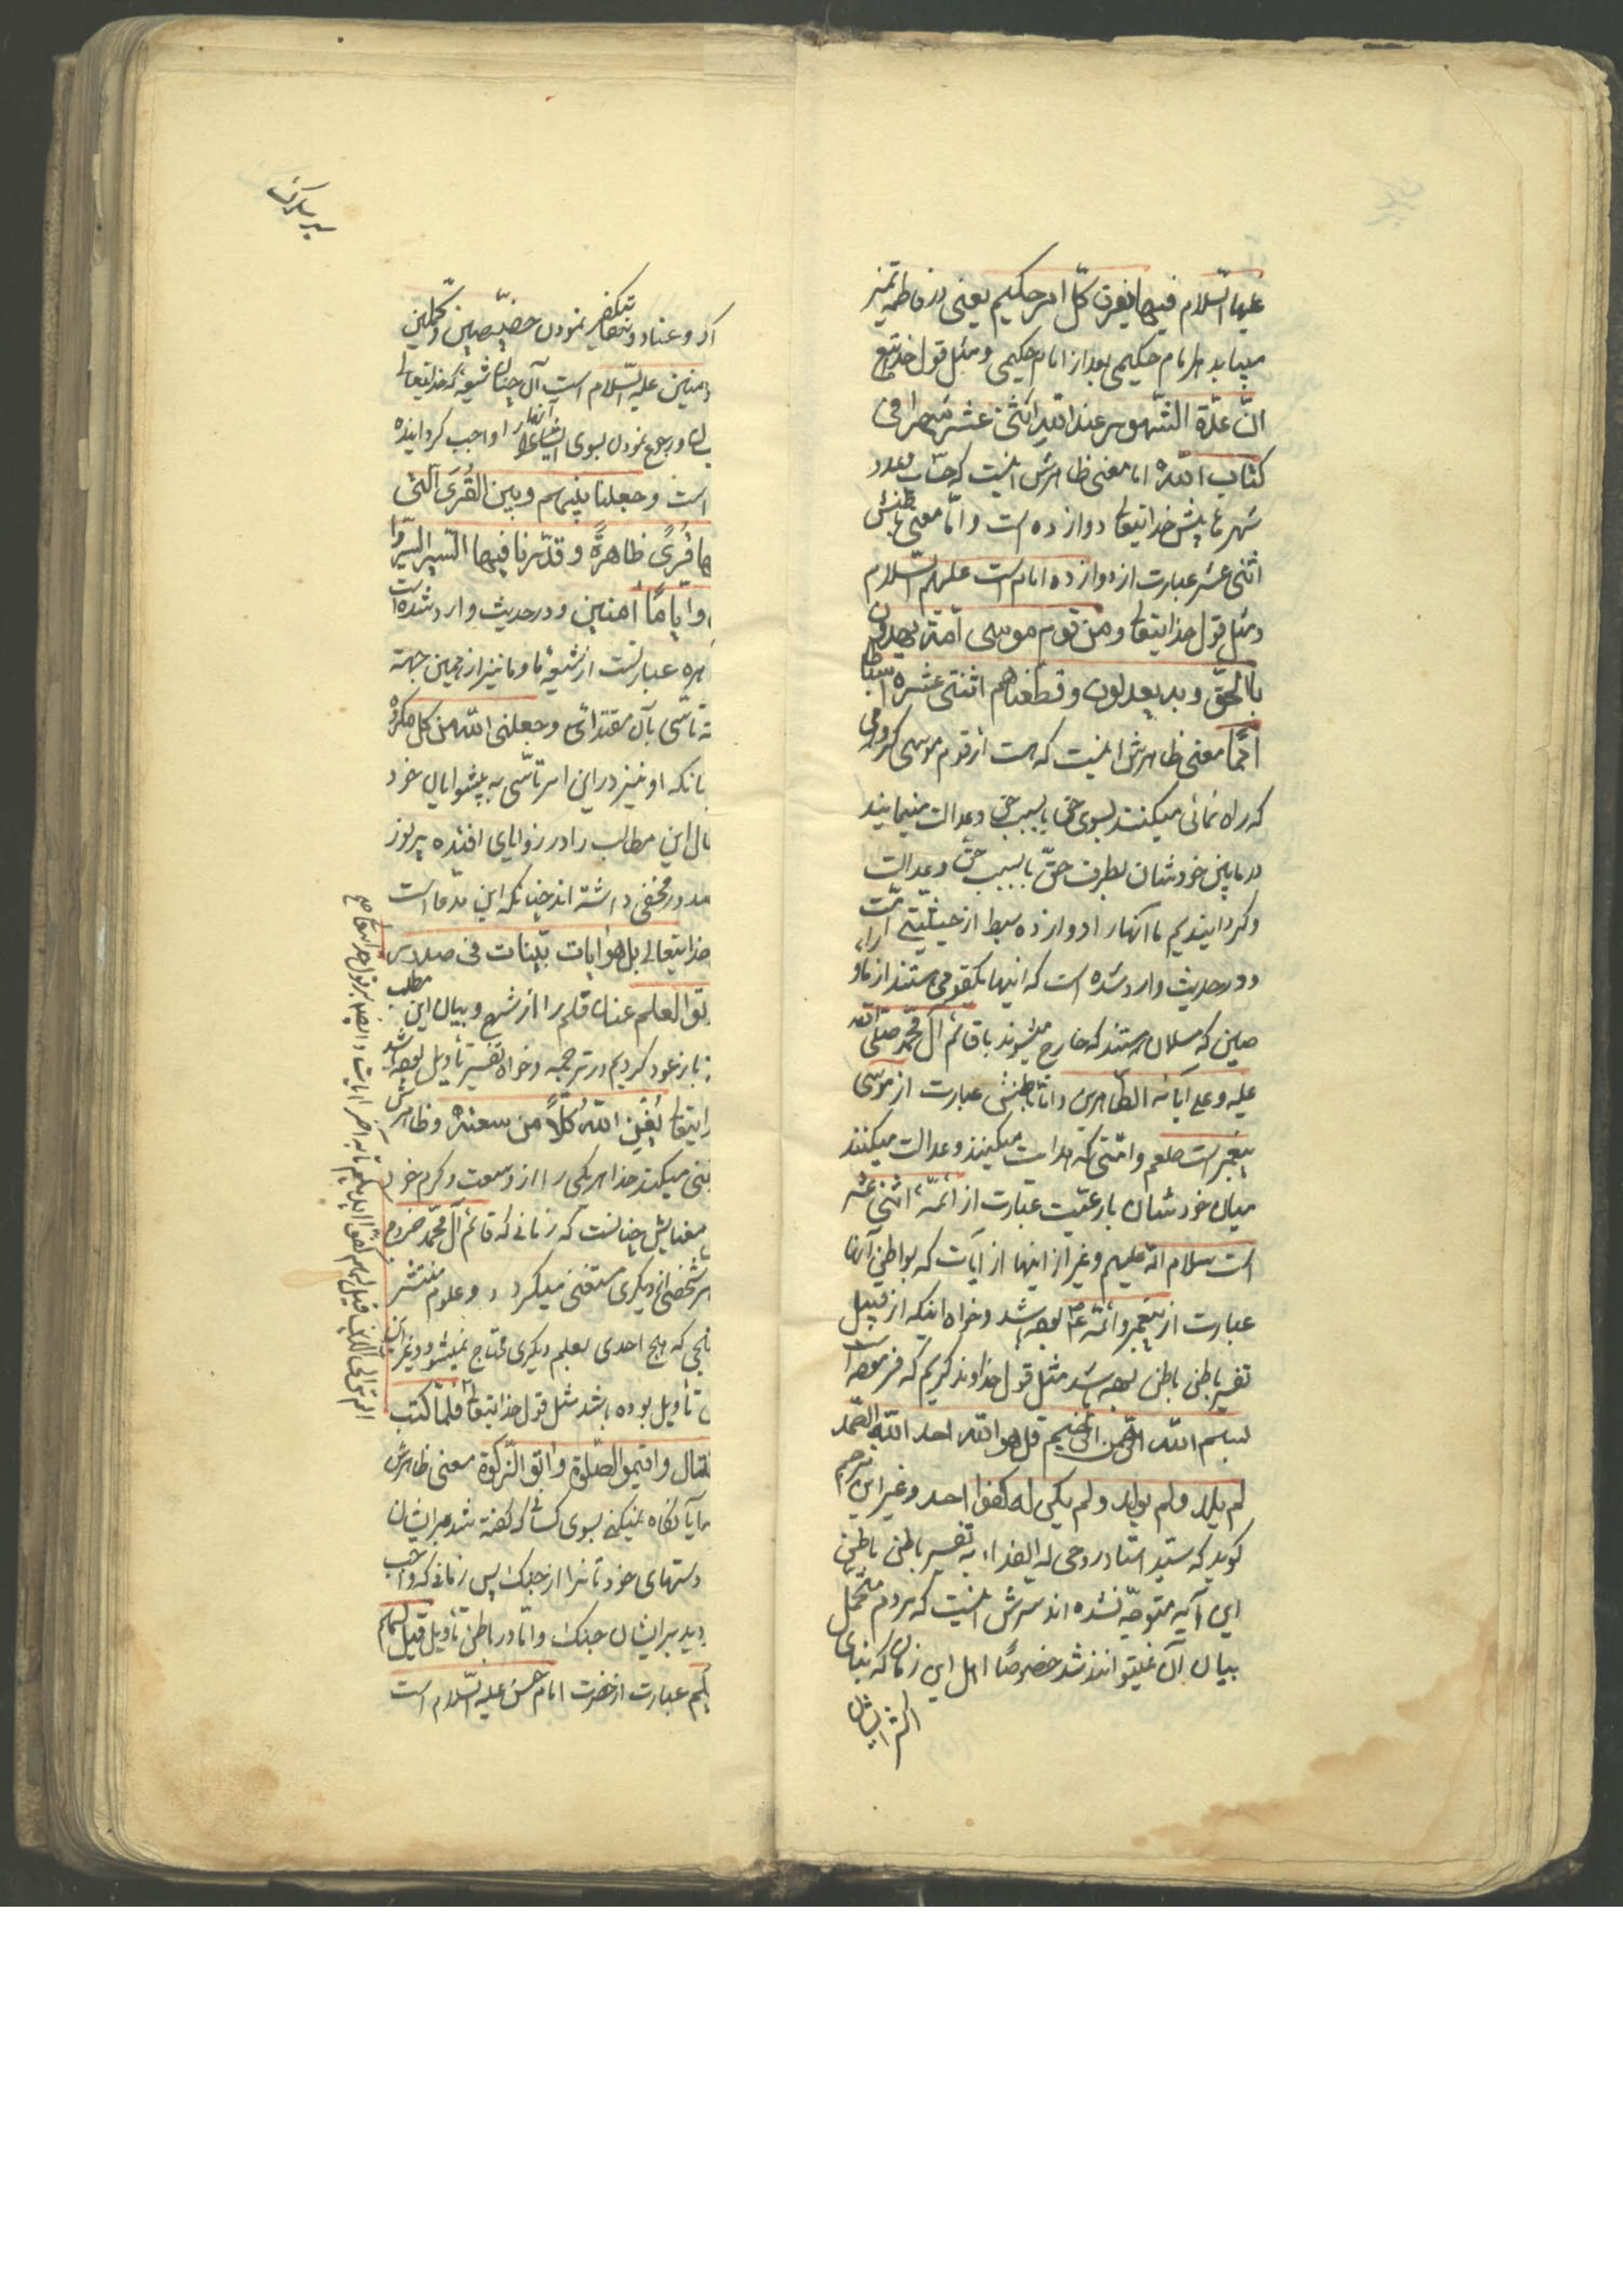 علیها السلام فیها یفرق کلّ امر حکیم یعنی در فاطمه تمیز
میباید هر امام حکیمی بعد از امام حکیمی و مثل قول خدایتع
انّ عدّة الشّهور عند الله اثنی عشر شهرا فی
کتاب الله اما معنی ظاهرش اینست که حساب و عدد
شهرها پیش خدایتعا دوازده است و امّا معنی باطنش
اثنی عشر عبارت از دوازده امام است علیهم السّلام
و مثل قول خدایتعا و من قوم موسی امّة یهدون
بالحقّ و به یعدلون و قطعناهم اثنتی عشره اسباطا
امما معنی ظاهرش اینست که هست از قوم موسی گروهی
که راه نمائی میکنند بسوی حق یا بسبب حق و عدالت مینمایند
در مابین خودشان بطرف حقّ یا بسبب حق و عدالت
و کردانیدیم ما آنها را دوازده سبط از حیثیّتی
و در حدیث وارد شده است که اینها یکقومی هستند از ماو
صین که مسلمان هستند که خارج میشوند با قائم آل محمد صلی الله
علیه و علی آبائه الطاهرین و اما باطنش عبارت از موسی
پیغمبر است صلعم و امّتی که هدایت میکنند و عدالت میکنند
میان خودشان با رعیّت عبارت از ائمّه اثنی عشر
است سلام الله علیهم و غیر از اینها از آیات که بواطن آنها
عبارت از پیغمبر و ائمّه ع بوده باشد و خواه اینکه از قبیل
تفسیر باطن باطن بوده باشد مثل قول خداوند کریم که فرموده است
بسم الله الرّحمن الرّحیم قل هو الله احد الله الصّمد
لم یلد و لم یولد و لم یکن له کفوا احد و غیر این مترجم
کوید که سیّد استاد روحی له الفداء به تفسیر باطن باطن
این آیه متوجّه نشده اند سرّش اینست که مردم متحمّل
بیان آن نمیتوانند شد خصوصًا اهل این زمان که بنای
اکثر ایشان
نمودن خصّیصین و کملین
منین علیه السّلام است آل چنان شیعه که خدایتعالی
و رجوع نمودن بسوی را واجب کردانیده
است و جعلنا بینهم و بین القُری الّتی
ها قُریً ظاهرةً و قدّرنا فیها السّیر سیروا
و ایّامًا امنین و در حدیث وارد شده است
هره عبارتست از شیعهٔ ما و ما نیز از همین جهته
تأسّی بآن مقتدای و جعلنی الله من کل مکروه
بانکه او نیز در این امر تأسّی به پیشوایان خود
این مطالب را در زوایای افئده پر نوز
مخفی داشته اند چنانکه این مدعا است
خدایتعالی بل هو ایات بیّنات فی صدور
توا العلم عنان قلم را از شرح و بیان این مطلب
باز عود کردیم در ترجمه و خواه تفسیر تأویل بوده باشد
یتعا یُغنِ اللهُ کلًّا من سعته و ظاهرش
نی میکند خدا هر یکی را از وسعت و کرم خود
معنایش چنانست که زمانی که قائم آل محمّد خروج
هر شخصی از دیکری مستغنی میکردد و علوم منتشر
که هیچ احدی بعلم دیکری محتاج نمیشود و غیر این
تأویل بوده باشد مثل قول خدایتعا فلمّا کتب
لقتال و اقیمو الصّلوة و اتو الزکوة معنی ظاهرش
آیا نکاه نمیکنی بسوی کسانی که گفته شد بر ایشان
دستهای خود تانرا از جنک پس زمانی که واجب
دید بر ایشان جنک و امّا در باطن تأویل قیل لهم
عبارت از حضرت امام حسن علیه السّلام است